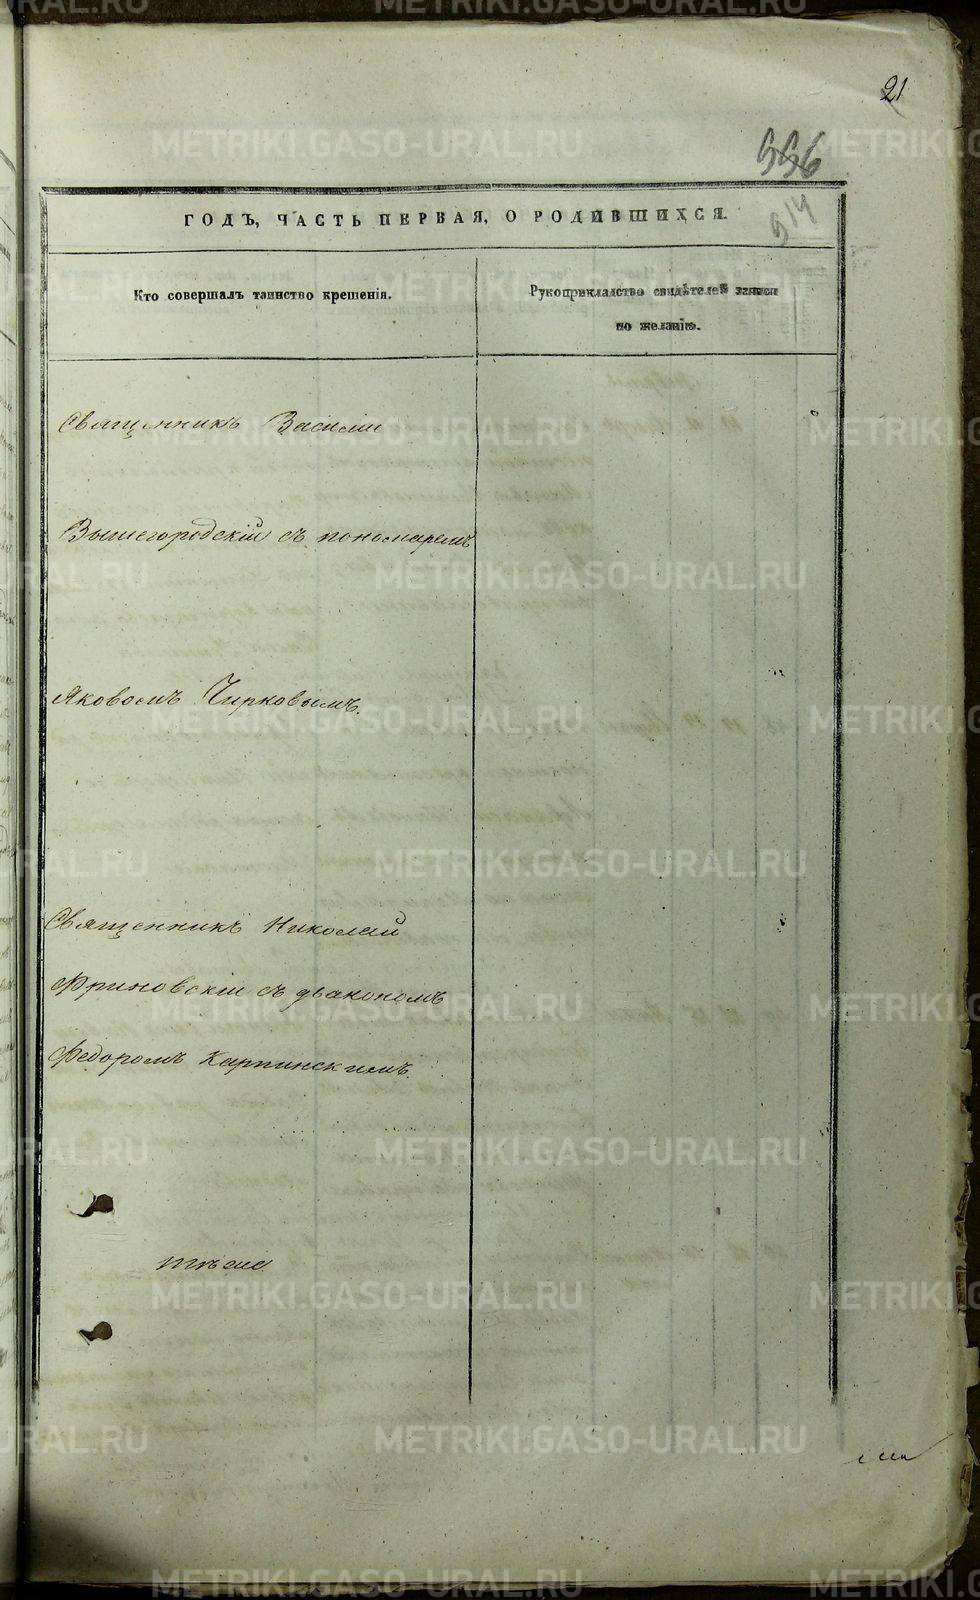 21
556
514
ГОДЪ, ЧАСТЬ ПЕРВАЯ, О РОДИВШИХСЯ.
Кто совершалъ таинство крещенія.
Рукоприкладство свидѣтелей записи
по желанію.
Священникъ Василій
Вышегородскій съ пономаремъ
Яковомъ Чирковымъ.
Священникъ Николай
Фриновскій съ діакономъ
Федоромъ Карпинскимъ.
тѣже
METRIKI.GASO-URAL.RU